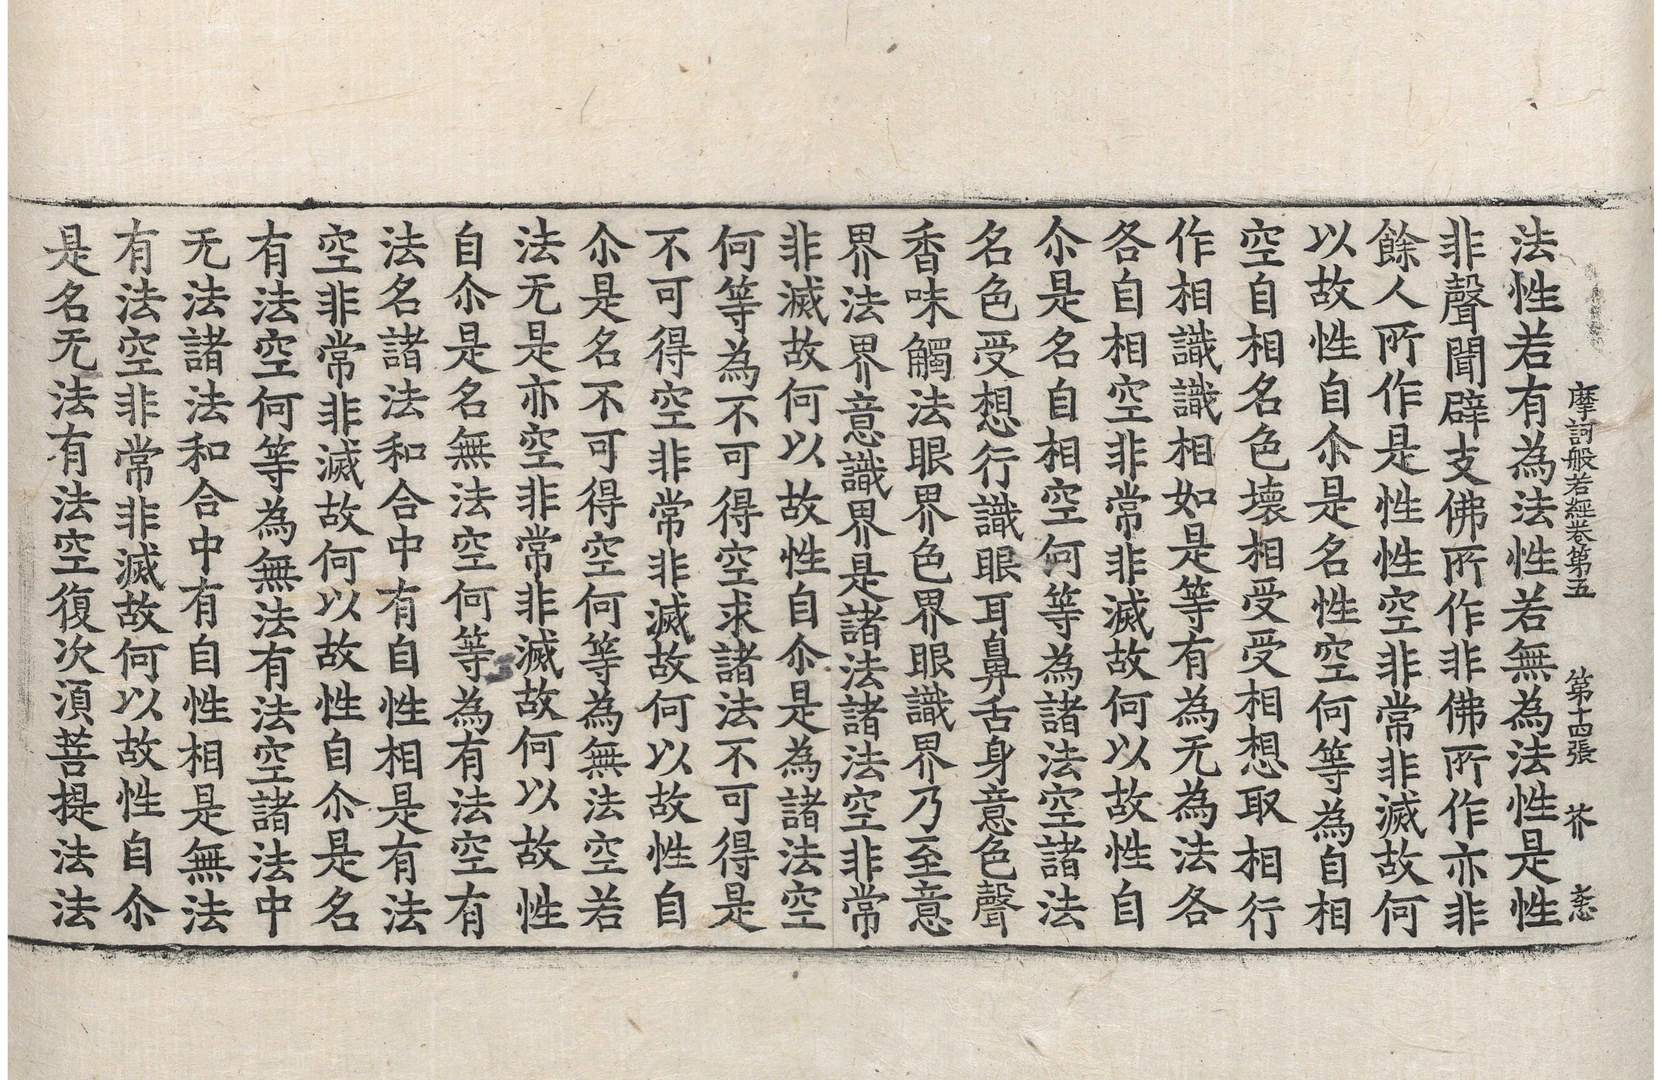 摩訶般若經卷第五 第十四張 芥
法性若有為法性若無為法性是性
非聲聞辟支佛所作非佛所作亦非
餘人所作是性性空非常非滅故何
以故性自尒是名性空何等為自相
空自相名色壞相受受相想取相行
作相識識相如是等有為无為法各
各自相空非常非滅故何以故性自
尒是名自相空何等為諸法空諸法
名色受想行識眼耳鼻舌身意色聲
香味觸法眼界色界眼識界乃至意
界法界意識界是諸法諸法空非常
非滅故何以故性自尒是為諸法空
何等為不可得空求諸法不可得是
不可得空非常非滅故何以故性自
尒是名不可得空何等為無法空若
法无是亦空非常非滅故何以故性
自尒是名無法空何等為有法空有
法名諸法和合中有自性相是有法
空非常非滅故何以故性自尒是名
有法空何等為無法有法空諸法中
无法諸法和合中有自性相是無法
有法空非常非滅故何以故性自尒
是名无法有法空復次湏菩提法法